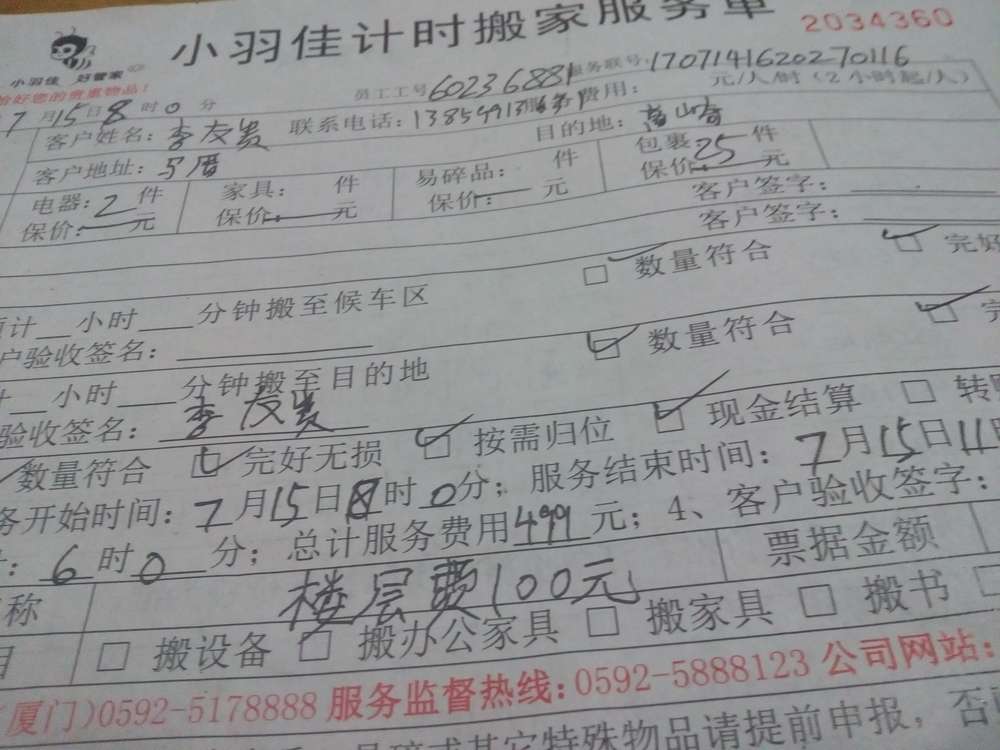 小羽佳计时搬家服务单
2034360
小羽佳 好管家
好您的贵重物品！
员工工号60236881服务联号:17071416202270116
7月15日8时0分
费用: 元/人/时（2小时起/人）
客户姓名:李友贵 联系电话:
目的地:
客户地址:
电器:2件 家具: 件 易碎品: 件 包裹25件
保价: 元 保价: 元 保价: 元 保价: 元
客户签字:
客户签字:
计 小时 分钟搬至候车区 数量符合 完好
户验收签名:
计 小时 分钟搬至目的地 数量符合 完
验收签名:李友贵
数量符合 完好无损 按需归位 现金结算 转
务开始时间:7月15日8时0分；服务结束时间:7月15日11时
:6时0分；总计服务费用499元；4、客户验收签字:
称 楼层费100元 票据金额
目 搬设备 搬办公家具 搬家具 搬书
(厦门)0592-5178888 服务监督热线:0592-5888123 公司网站:
易碎或其它特殊物品请提前申报，否